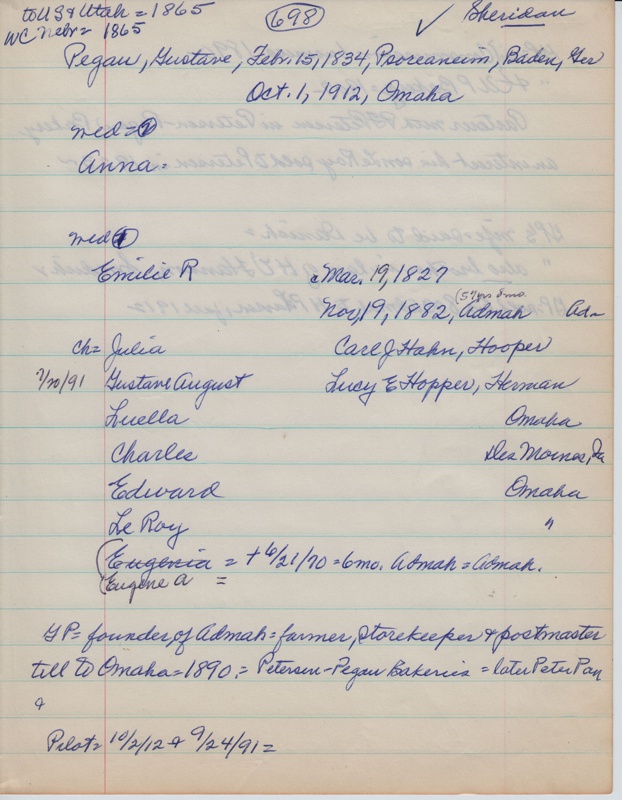 to US & Utah = 1865
698
✓ Sheridan
WC Nebr = 1865
Pegau, Gustave, Febr. 15, 1834, Psoreaneim, Baden, Ger
Oct. 1, 1912, Omaha
med = 2
Anna =
med 1
Emilie R Mar. 19, 1827
(57 yrs 8 mo.
Nov, 19, 1882, Admah Ad~
ch = Julia Carl J Hahn, Hooper
7/10/91 Gustave August Lucy E Hopper, Herman
Luella Omaha
Charles Des Moines, Ia
Edward Omaha
Le Roy "
(Eugenia = + 6/21/70 = 6 mo. Admah = Admah.
(Eugene A =
GP = founder, of Admah = farmer, storekeeper & postmaster
till to Omaha = 1890. = Petersen-Pegau Bakeries = later Peter Pan
&
Pilot = 10/2/12 & 9/24/91 =